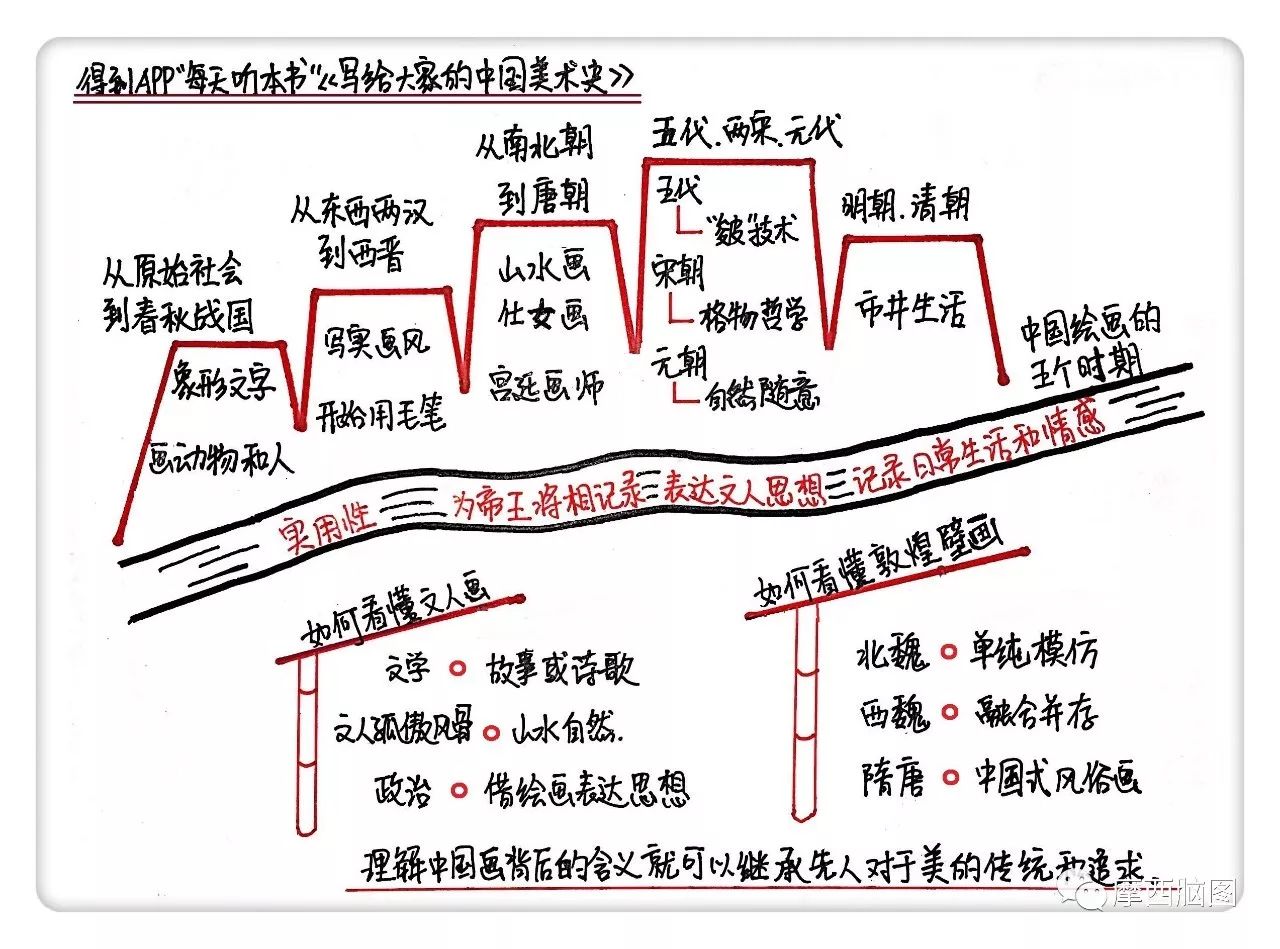 得到APP"每天听本书"《写给大家的中国美术史》
从原始社会
到春秋战国
象形文字
画动物和人
从东西两汉
到西晋
写实画风
开始用毛笔
从南北朝
到唐朝
山水画
仕女画
宫廷画师
五代.两宋.元代
五代
"皴"技术
宋朝
格物哲学
元朝
自然随意
明朝.清朝
市井生活
中国绘画的
五个时期
实用性
为帝王将相记录
表达文人思想
记录日常生活和情感
如何看懂文人画
文学 故事或诗歌
文人孤傲风骨 山水自然.
政治 借绘画表达思想
如何看懂敦煌壁画
北魏 单纯模仿
西魏 融合并存
隋唐 中国式风俗画
理解中国画背后的含义就可以继承先人对于美的传统和追求
摩西脑图